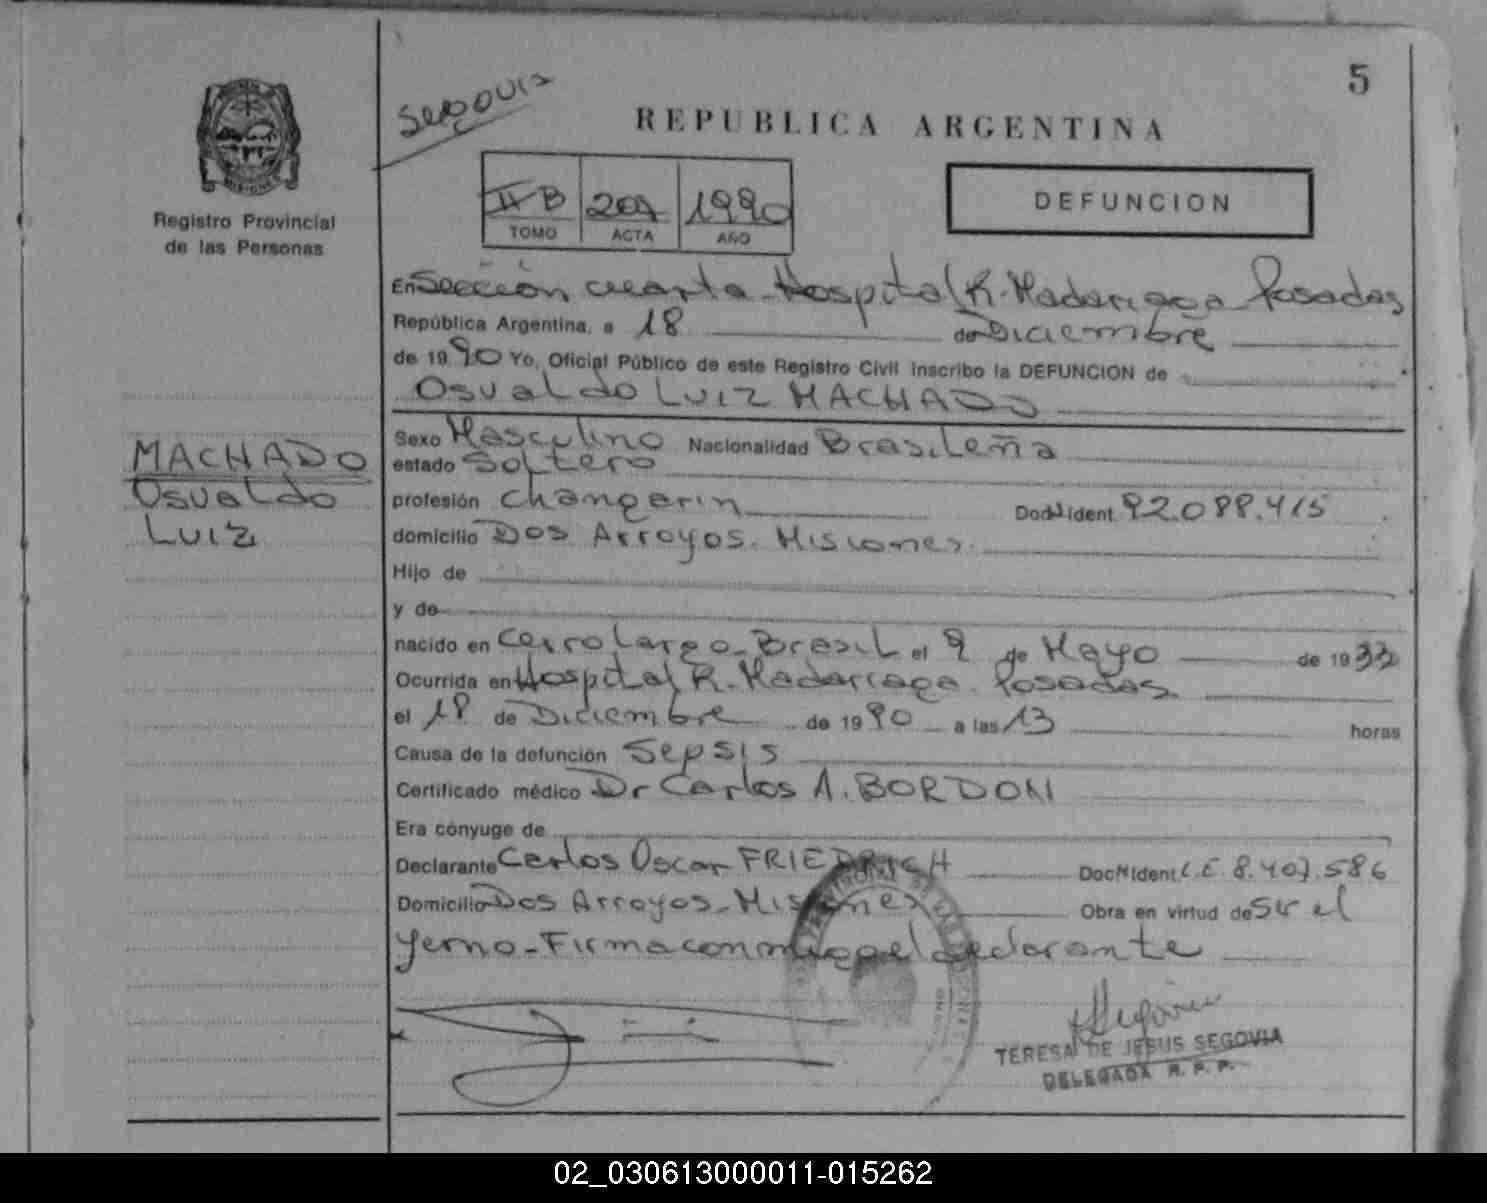 5
Segovia
REPUBLICA ARGENTINA
MISIONES
Registro Provincial
de las Personas
II B 1990
TOMO ACTA AÑO
DEFUNCION
En Sección cuarta - Hospital R. Madariaga Posadas
República Argentina, a 18 de Diciembre
de 1990 Yo, Oficial Público de este Registro Civil inscribo la DEFUNCION de
Osvaldo Luiz MACHADO
MACHADO
Osvaldo
Luiz
Sexo Masculino Nacionalidad Brasileña
estado Soltero
profesión Changarin Doc. Ident. 92.088.415
domicilio Dos Arroyos. Misiones.
Hijo de
y de
nacido en Cerro Largo - Brasil el 9 de Mayo de 1933
Ocurrida en Hospital R. Madariaga. Posadas
el 18 de Diciembre de 1990 a las 13 horas
Causa de la defunción Sepsis
Certificado médico Dr Carlos A. BORDON
Era cónyuge de
Declarante Carlos Oscar FRIEDRICH Doc. Ident L.E. 8.407.586
Domicilio Dos Arroyos - Misiones Obra en virtud de ser el
yerno - Firma conmigo el declarante
TERESA DE JESUS SEGOVIA
DELEGADA R. P. P.
02_030613000011-015262